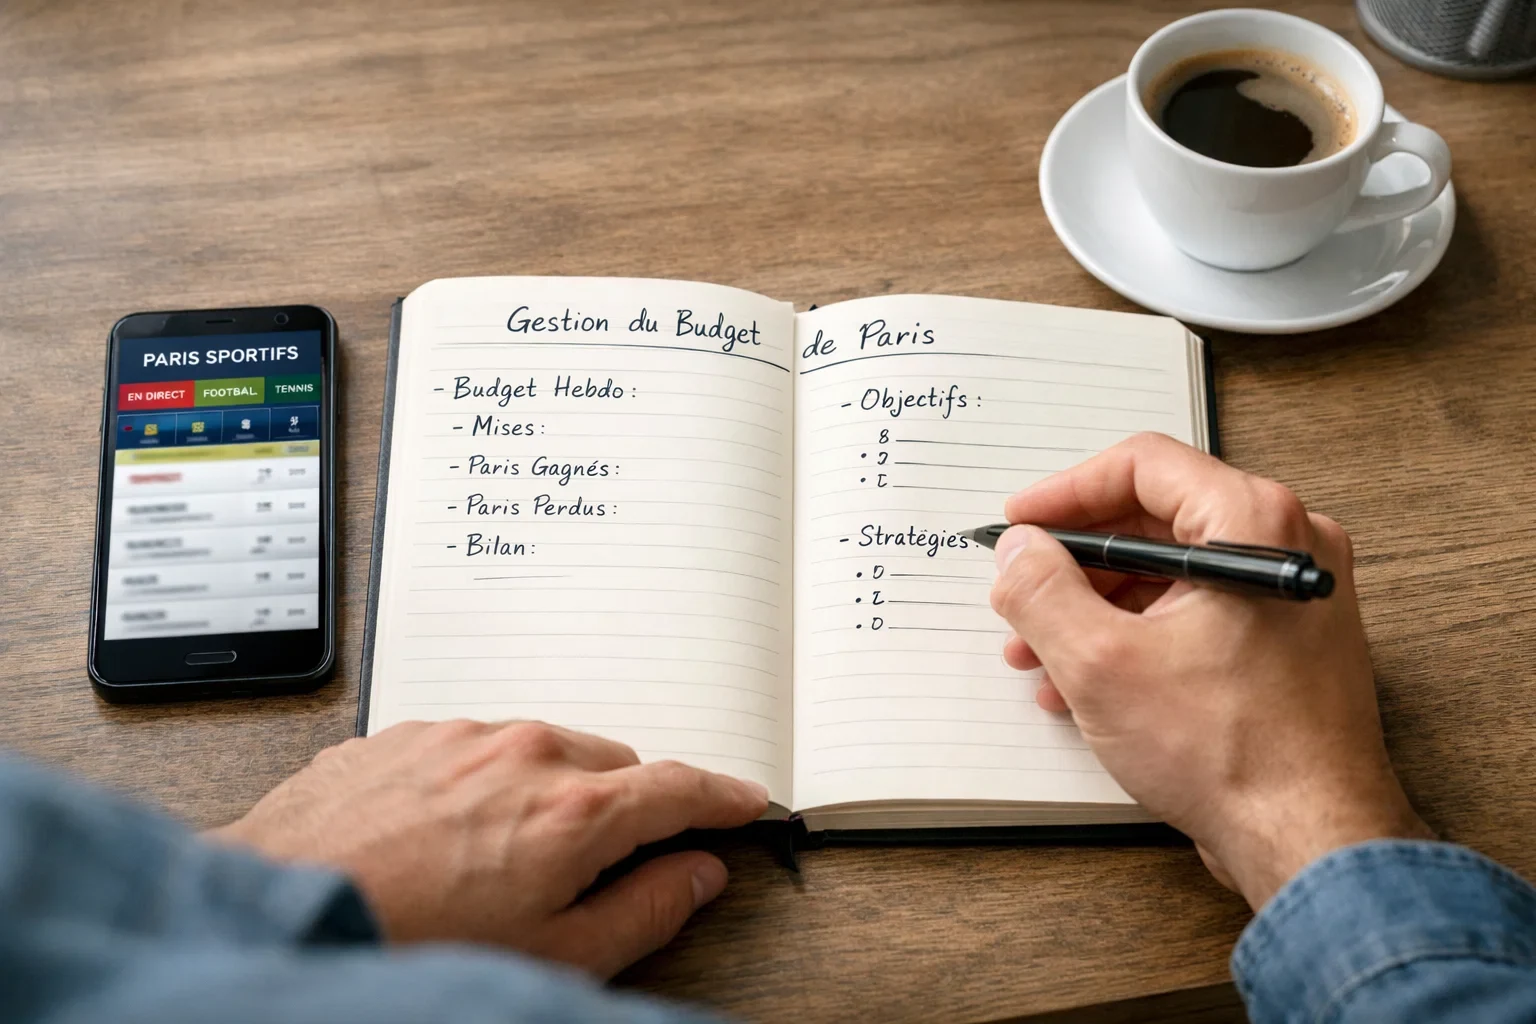 PARIS SPORTIFS
EN DIRECT FOOTBAL TENNIS
Gestion du Budget de Paris
- Budget Hebdo :
- Mises :
- Paris Gagnés :
- Paris Perdus :
- Bilan :
- Objectifs :
- Stratëgies :